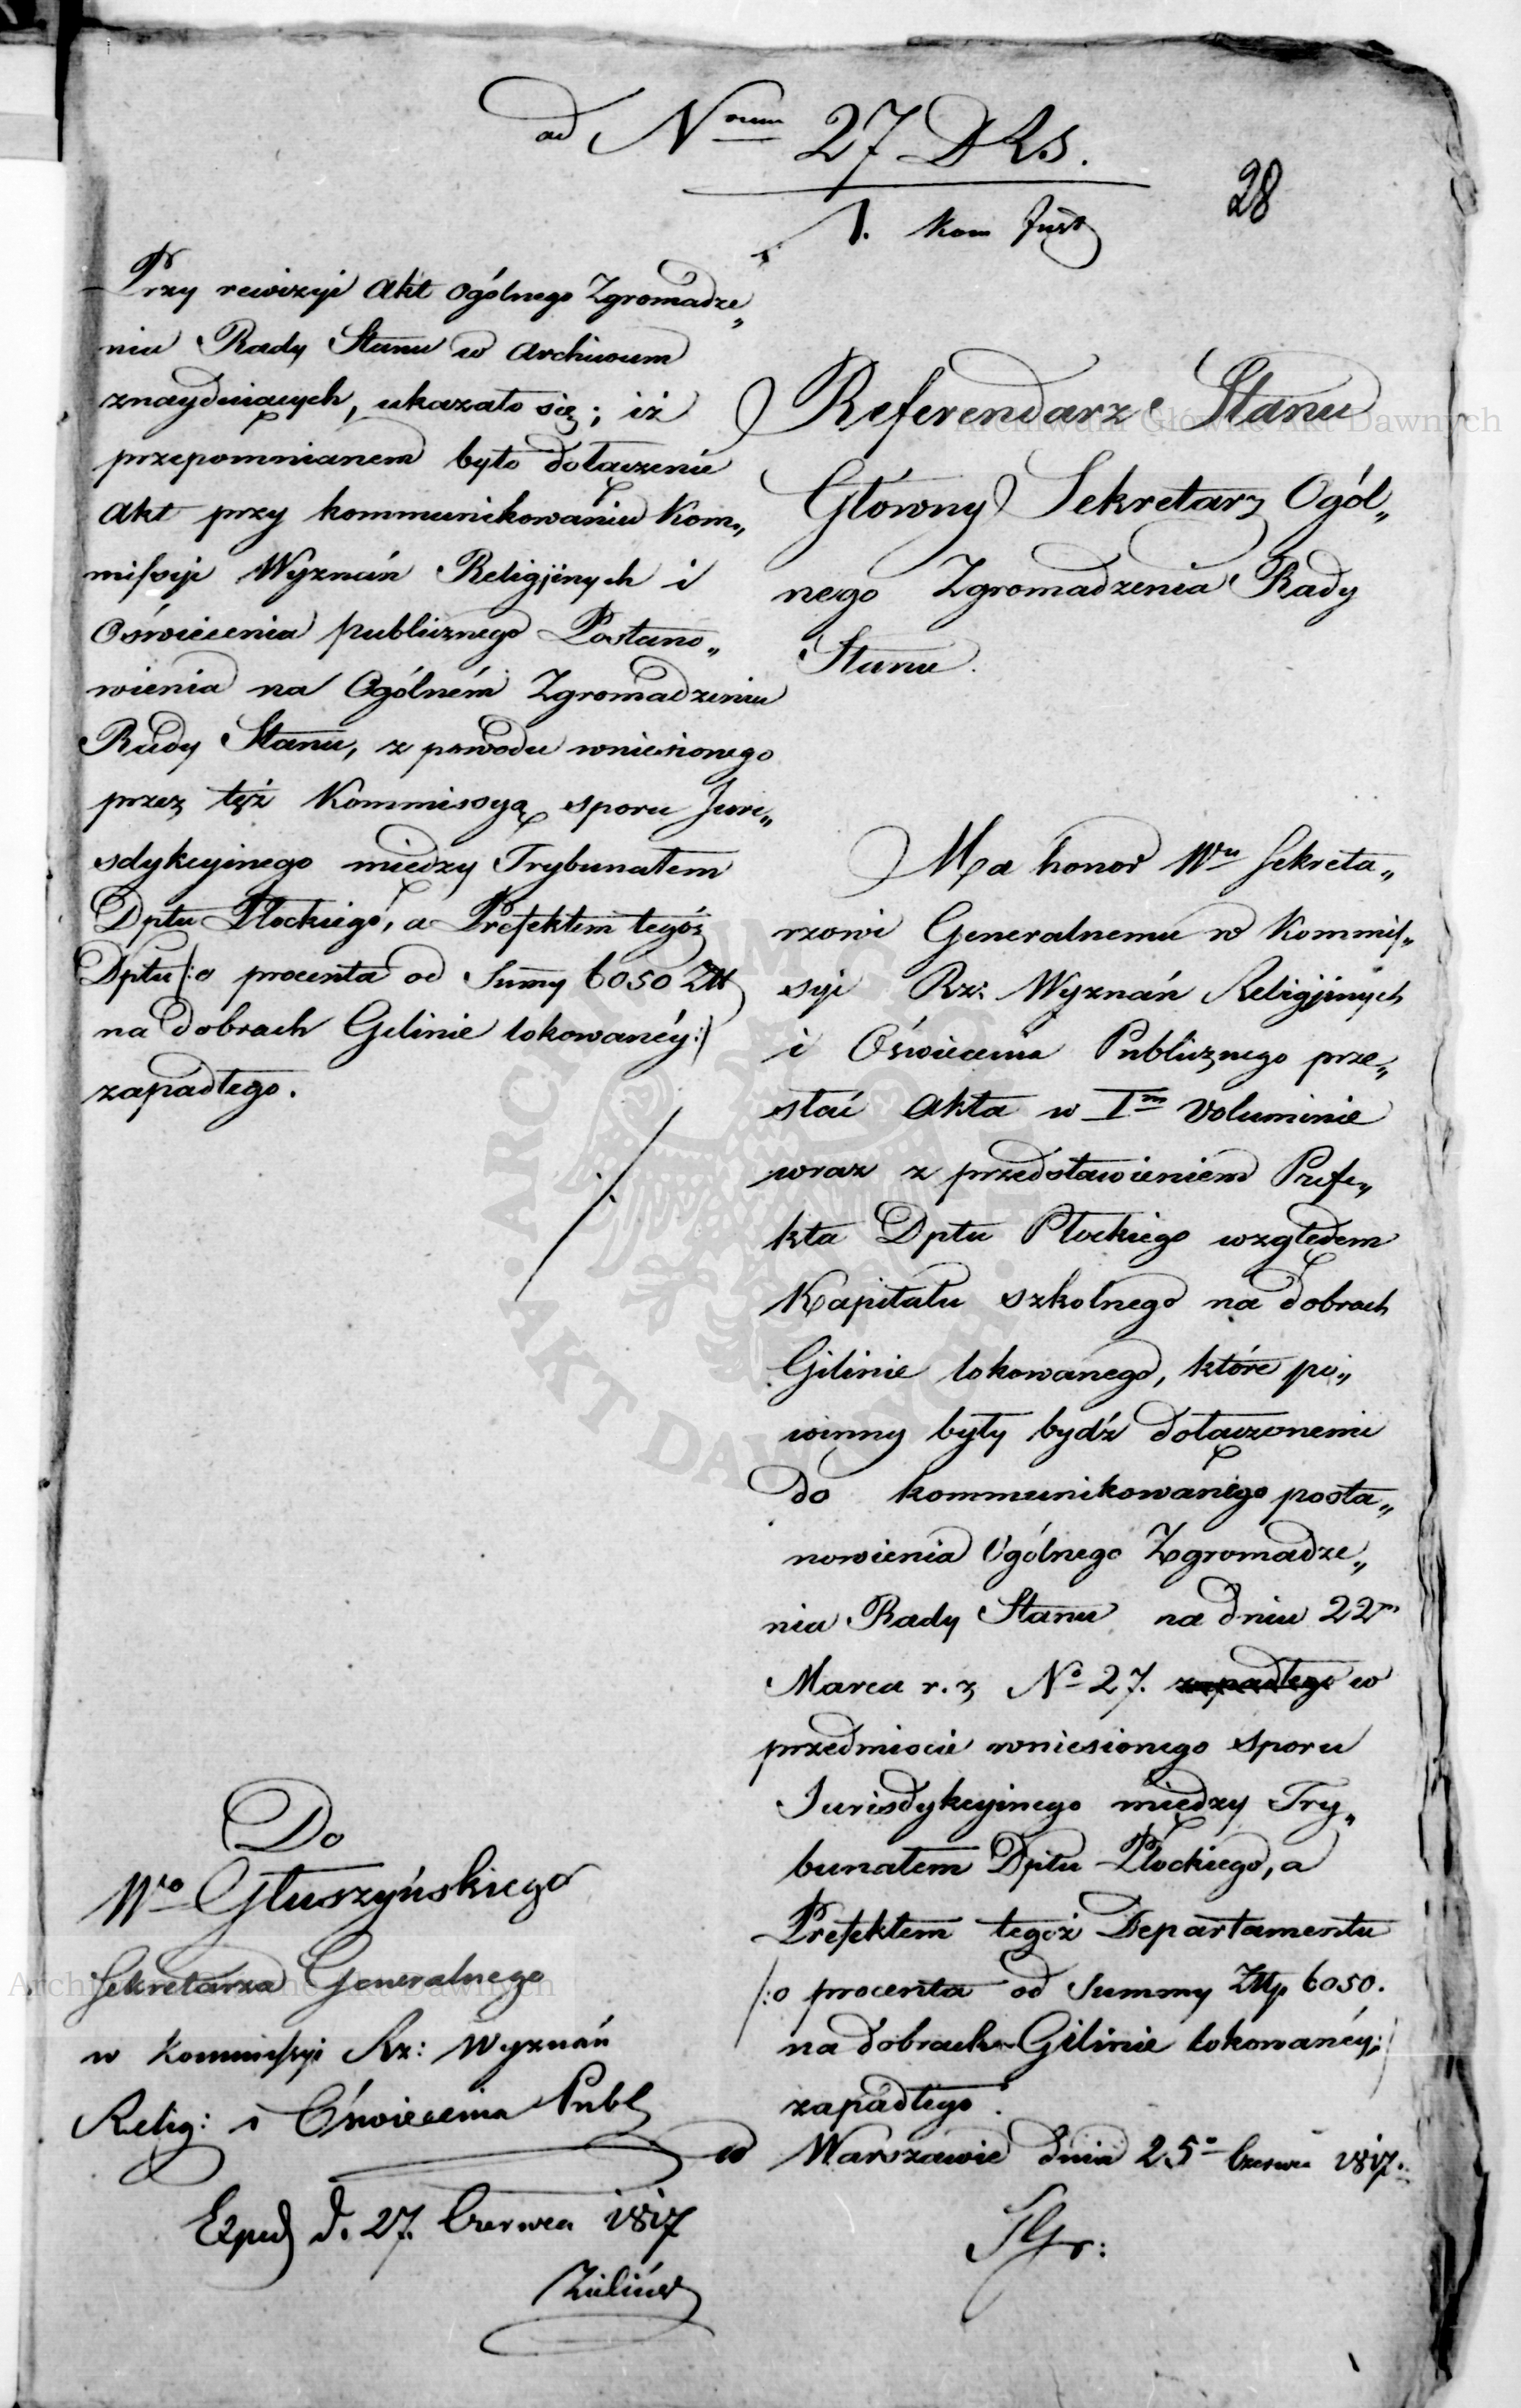 ad Nrum 27 DRS.
1. Kom Just
28
Przy rewizyi Akt ogólnego Zgromadze„
nia Rady Stanu w Archiwum
znayduiących, ukazało się; iż
przepomnianem było dołączenie
Akt przy kommunikowaniu Kom„
missyi Wyznań Religijnych i
Oświecenia publicznego Postano„
wienia na Ogólném Zgromadzeniu
Rady Stanu, z powodu wniesionego
przez tęż Kommissyą sporu Juri„
sdykcyinego między Trybunałem
Dptu Płockiego, a Prefektem tegóż
Dptu /:o procenta od Summy 6050 Złł
na dobrach Gilinie lokowanéy:/
zapadłego.
Do
Wo Głuszyńskiego
Sekretarza Generalnego
w Kommissyi Rz: Wyznań
Relig: i Oświecenia Publ
Exped d. 27. Czerwca 1817
Referendarz Stanu
Główny Sekretarz Ogól„
nego Zgromadzenia Rady
Stanu.
Ma honor Wu Sekreta„
rzowi Generalnemu w Kommis„
syi Rz: Wyznań Religijnych
i Oświecenia Publicznego prze„
słać Akta w Im Voluminie
wraz z przedstawieniem Prefe„
kta Dptu Płockiego względem
Kapitału szkolnego na dobrach
Gilinie lokowanego, które po„
winny były bydź dołączonemi
do kommunikowanégo posta„
nowienia Ogólnego Zgromadze„
nia Rady Stanu na dniu 22m
Marca r. z No 27. zapadłego w
przedmiocie wniesionego sporu
Jurisdykcyinego między Try„
bunałem Dptu Płockiego, a
Prefektem tegoż Departamentu
/:o procenta od Summy Złłp. 6050.
na dobrach Gilinie lokowanéy:/
zapadłego.
w Warszawie dnia 25o Czerwca 1817.
Archiwum Główne Akt Dawnych
Archiwum Główne Akt Dawnych
ARCHIWUM GŁÓWNE · AKT DAWNYCH ·